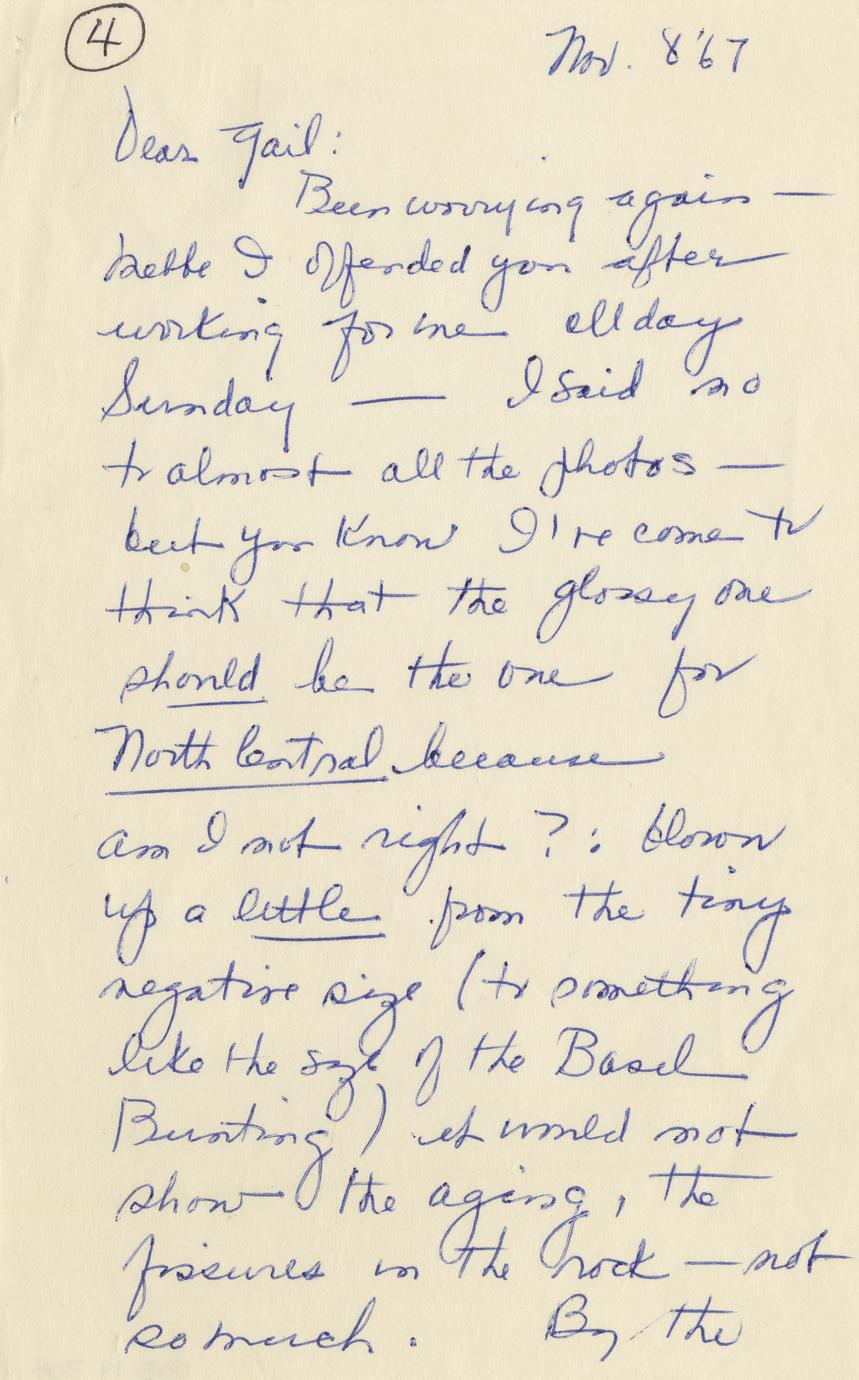 4
Nov. 8 '67
Dear Gail:
Been worrying again —
I offended you after
working for me all day
Sunday — I said no
to almost all the photos —
but you know I've come to
think that the glossy one
should be the one for
North Central because
am I not right?: blown
up a little from the tiny
negative size (to something
like the size of the Basil
Bunting) it would not
show the aging, the
fissures in the rock — not
so much. By the